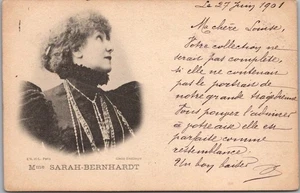 Le 27 Juin 1901
Ma chère Louise,
Votre collection ne
serait pas complète
si elle ne contenait
pas le portrait de
notre grande tragédienne
Vous pouvez l'admirer
elle est
parfaite comme
ressemblance
Un bon baiser
Mme SARAH-BERNHARDT